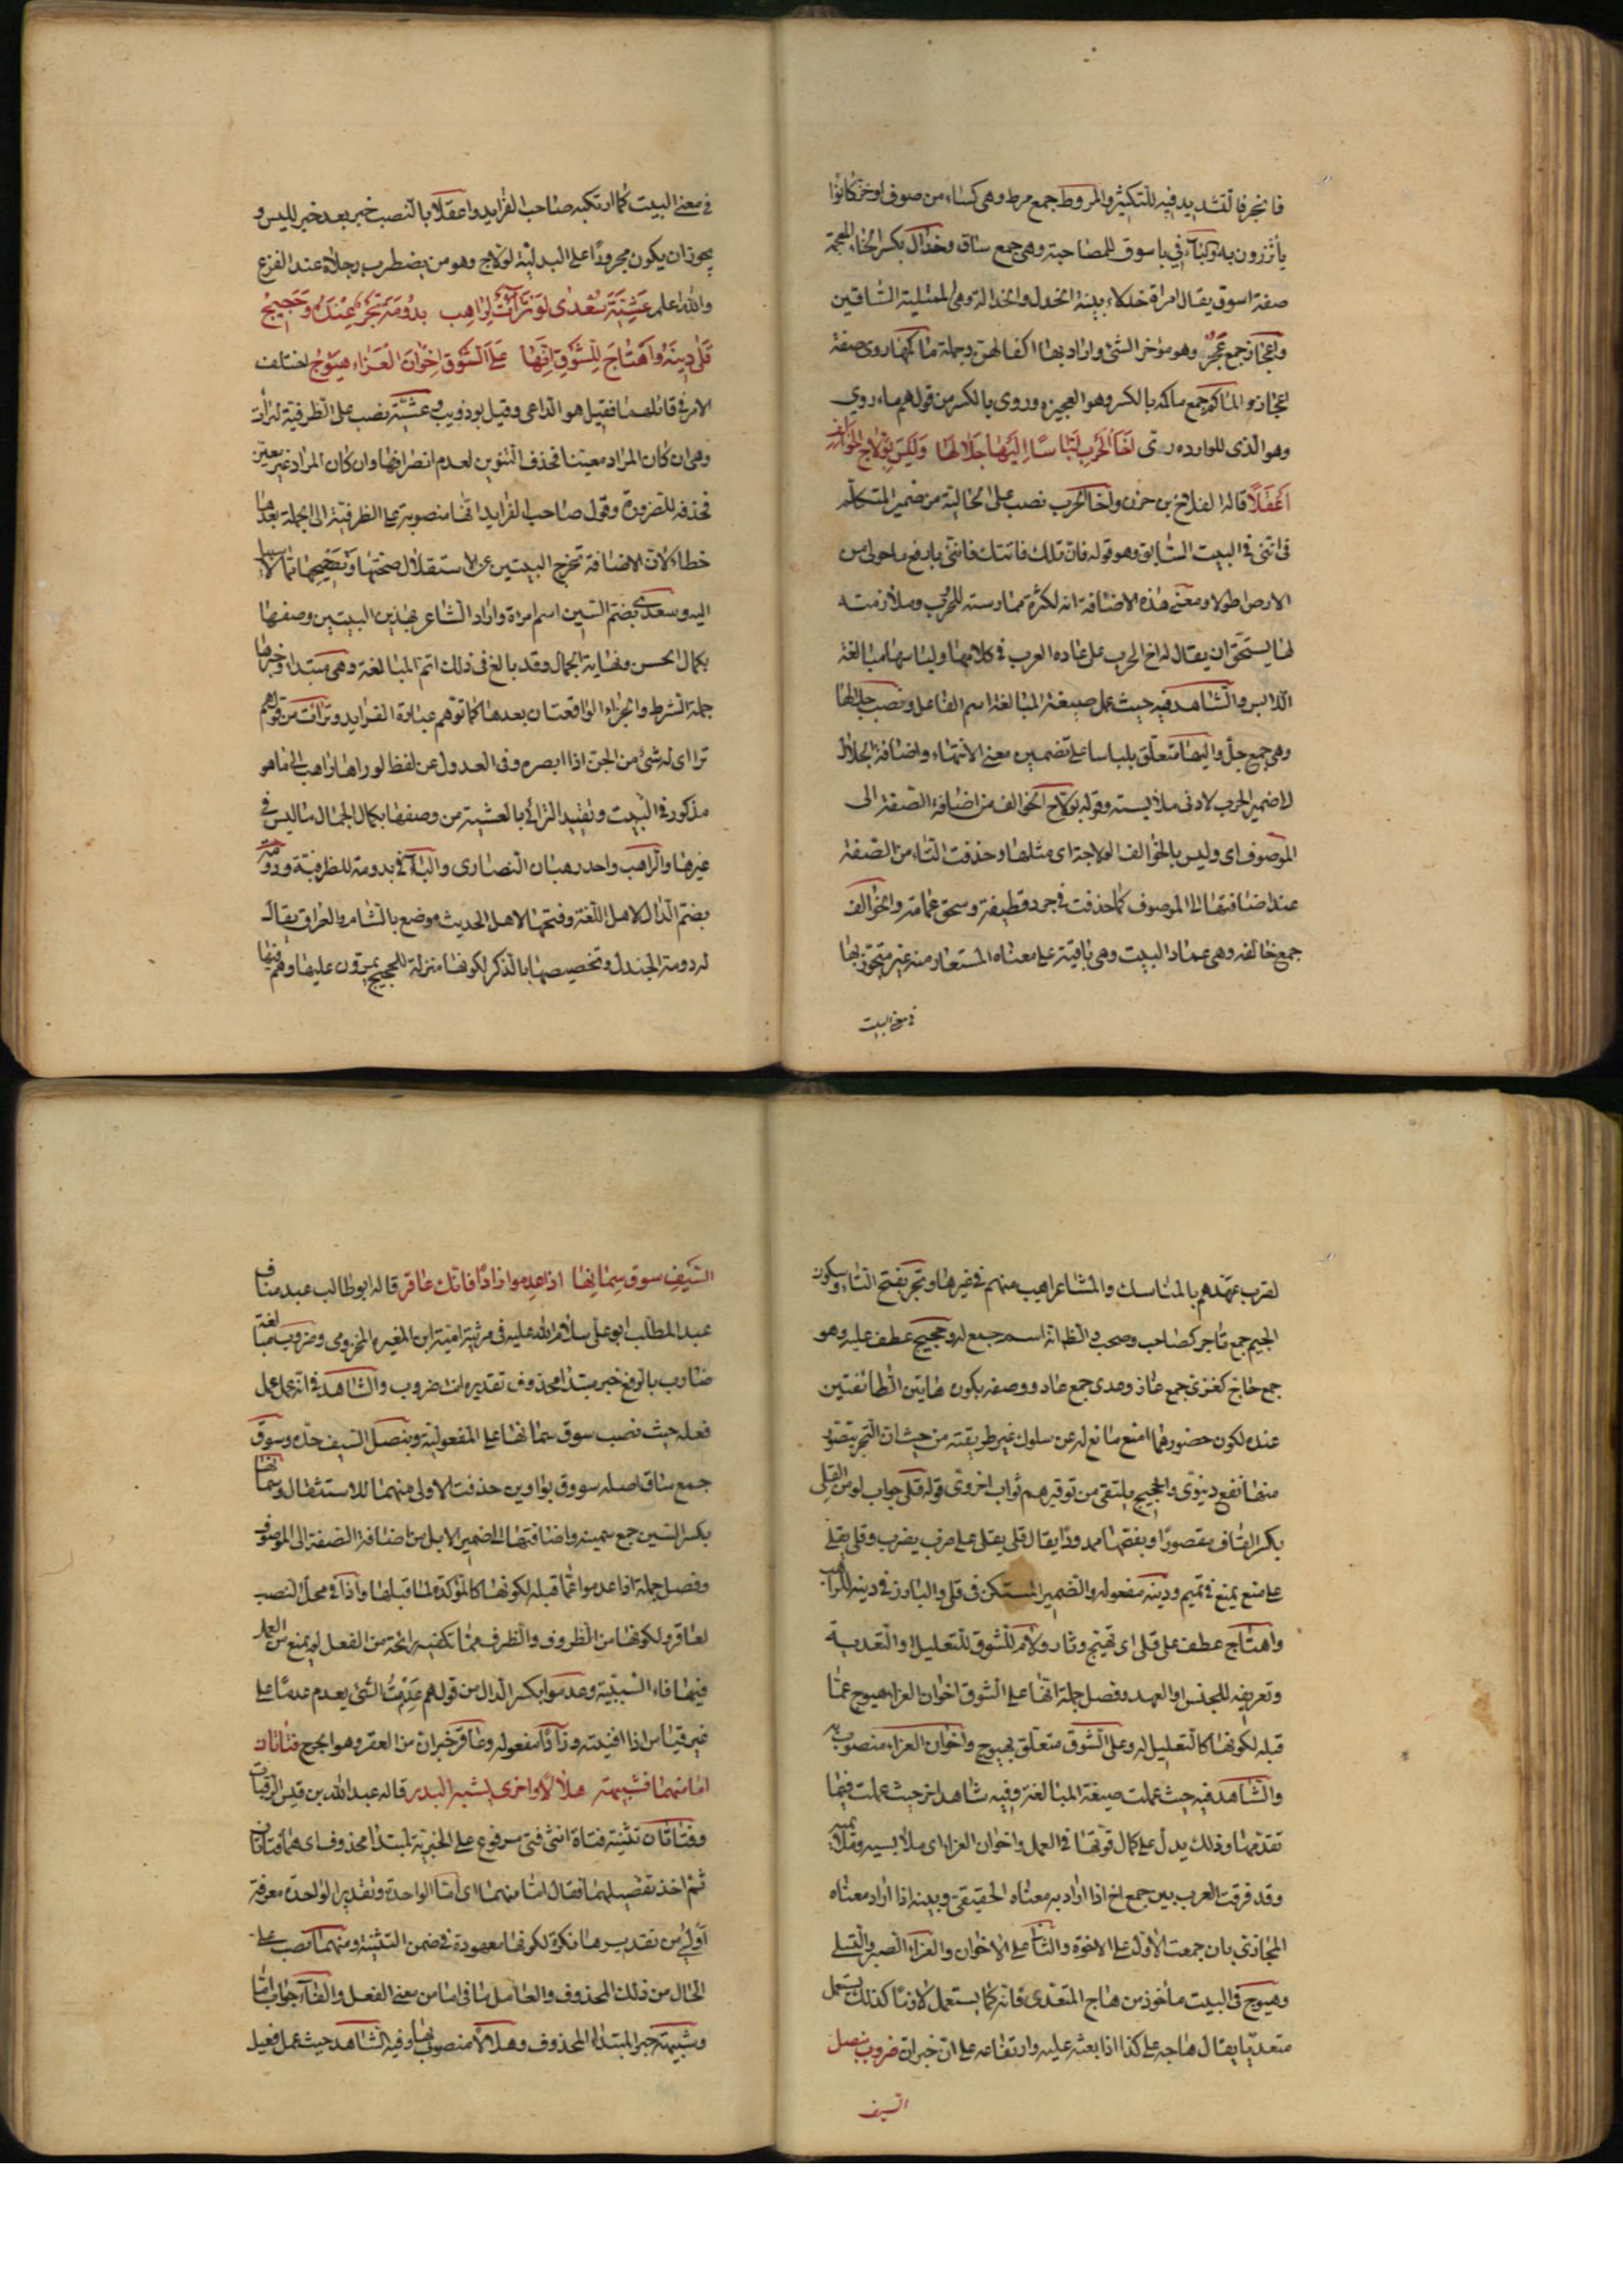 فانجر فالتشديد فيه للتكثير والمروط جمع مرط وهى كساء من صوف او خز كانوا
يأتزرون به وكناء في باسوق للمصاحبة وهى جمع ساق وخدال بكسر الخاء المعجمة
صفة اسوق يقال امراة خدلاء بينة الخدل والخدالة وهى الممتلية الساقين
واعجاز جمع عجز وهو مؤخر الشئ واراد بها اكفالهن وجملة ماكمها روى صفة
اعجاز والماكم جمع ماكمه بالكسر وهو العجيزه وروى بالكسر من قولهم ماء روي
وهو الذى للوارده رى اخا الحرب لباسا اليها جلالها وليس بولاج الخوالف
اعقلا قاله القلاخ بن حزن واخا الحرب نصب على الحالية من ضمير المتكلم
فى انني فى البيت السابق وهو قوله فان تلك فاتتك فانني بارفع ما حولى من
الارض اطولا ومعنى هذه الاضافة انه لكثرة ممارسته للحرب وملازمته
لها يستحق ان يقال له اخ الحرب على عاده العرب فى كلامها ولباسها مبالغة
اللابس والشاهد فيه حيث عمل صيغة المبالغة اسم الفاعل ونصب جلالها
وهى جمع جل واليها متعلق بلباسا على تضمين معنى الانتهاء واضافة الجلال
لاضمير الحرب لادنى ملابسته وقوله بولاج الخوالف من اضافة الصفة الى
الموصوف اى وليس بالخوالف الولاجة اى مثلها وحذفت التاء من الصفة
عند اضافتها الى الموصوف كما حذفت فى جرد قطيفة وسحق عمامة والخوالف
جمع خالفه وهى عماد البيت وهى باقية على معناه المستعار منه غير متجوز بها
فى معنى البيت
فى معنى البيت كما ارتكبه صاحب الفرايد واعقلا بالنصب خبر بعد خبر لليس و
يجوز ان يكون مجرورا على البدلية لولاج وهو من يضطرب رجلاه عند الفزع
والله اعلم عشية سعدى لو تراءت لراهب بدومة تجر عنده وحجيج
قلى دينه واهتاج للشوق انها على الشوق اخوان العزاء هيوج اختلف
الامر فى قائلهما فقيل هو الراعى وقيل بوذويب وعشية نصب على الظرفية لترأت
وهى ان كان المراد معينا فحذف التنوين لعدم انصرافها وان كان المراد غير معين
فحذفه للضرورة وقول صاحب الفرايد انها منصوبة على الظرفية الى الجملة بعدها
خطاء لان الاضافة تخرج البيتين عن الاستقلال صحتها وتصحيحها مما لا سبيل
اليه وسعدى بضم السين اسم امراة واراد الشاعر بهذين البيتين وصفها
بكمال الحسن ونهاية الجمال وقد بالغ فى ذلك اتم المبالغة وهى مبتداء وخبرها
جملة الشرط والجزاء الواقعتان بعدها كما توهم عبارة الفرايد وترأت من قولهم
تراأى له شئ من الجن اذا ابصره وفى العدول عن لفظ لو راها راهب الى ما هو
مذكور فى البيت وتقييد الترائي بالعشية من وصفها بكمال الجمال ما ليس فى
غيرها والراهب واحد رهبان النصارى والباء فى بدومة للظرفية ودومة
بضم الدال لاهل اللغة وفتحها لاهل الحديث موضع بالشام والعراق يقال
له دومة الجندل وتخصيصها بالذكر لكونها منزلة للحجيج يمرون عليها وهم فيها
لقرب عهدهم بالمناسك والمشاعر اهيب منهم فى غيرها وتجر بفتح التاء وسكون
الجيم جمع تاجر كصاحب وصحب والظ انه اسم جمع له وحجيج عطف عليه وهو
جمع حاج كغزى جمع غاز وعدى جمع عاد ووصفه بكون هاتين الطائفتين
عنده لكون حضورهما امنع مانع له عن سلوك غير طريقته من حيث ان التجر يتصور
منها نفع دنيوى والحجيج يلتقى من توقيرهم ثواب اخروى قوله قلى جواب لو من القلى
بكسر القاف مقصورا وبفتحها ممدودا يقال قلى يقلى على ضرب يضرب وقلى يقلى
على منع يمنع فى تميم ودينه مفعوله والضمير المستكن فى قلى والبارز فى دينه للراهب
واهتاج عطف على قلى اى تهيج وثار ولام للشوق للتعليل او التعدية
وتعريفه للجنس او العهد وفصل جملة انها على الشوق اخوان العزاء هيوج عما
قبله لكونها كالتعليل له وعلى الشوق متعلق بهيوج واخوان العزاء منصوب به
والشاهد فيه حيث عملت صيغة المبالغة وفيه شاهد اخر حيث عملت فيما
تقدمها وذلك يدل على كمال قوتها فى العمل واخوان العزاء اى ملابسيه
وقد فرقت العرب بين جمع اخ اذا اراد به معناه الحقيقى وبينه اذا اراد معناه
المجازى بان جمعت الاول على الاخوة والثانى على الاخوان والعزاء الصبر والتسلى
وهيوج فى البيت ماخوذ من هاج المتعدى فانه كما يستعمل لازما كذلك يستعمل
متعديا يقال هاجه على كذا اذا بعثه عليه وارتفاعه على ان خبر ان ضروب بنصل
السيف
السيف سوق سمانها اذا عدموا زادا فانك عاقر قاله ابو طالب عبد مناف
عبد المطلب ابو على سلام الله عليه فى مرثية امية ابن المغيره المخزومى وضروب مبالغة
ضارب بالرفع خبر مبتدا محذوف تقديره انت ضروب والشاهد فى انه عمل عمل
فعله حيث نصب سوق سمانها على المفعولية ونصل السيف حده وسوق
جمع ساق اصله سووق بواوين حذفت الاولى منهما للاستثقال وسمانها
بكسر السين جمع سمينه واضافتها الى ضمير الابل من اضافة الصفة الى الموصوف
وفصل جملة اذا عدموا عما قبله لكونها كالمؤكدة لما قبلها واذا فى محل النصب
لعاقر ولكونها من الظروف والظرف مما تكفيه رائحة من الفعل لم يمنع من العمل
فيها فاء السببية وعدموا بكسر الدال من قولهم عدمت الشئ يعدم عدما على
غير قياس اذا افنيته وزادا مفعوله وعاقر خبر ان من العقر وهو الجرح فتاتان
اما منهما فشبيهة هلالا واخرى لشبه البدر قاله عبد الله بن قيس الرقيات
وفتاتان تثنية فتاة انثى فتى مرفوع على الخبرية لمبتدا محذوف اى هما فتاتان
ثم اخذ تفصيلهما فقال اما منهما اى اما الواحدة وتقدير الواحدة معرفة
اولى من تقديرها نكرة لكونها معهودة فى ضمن التثنية ومنهما نصب على
الحال من ذلك المحذوف والعامل ما فى اما من معنى الفعل والفاء جواب اما
وشبيهة خبر المبتدا المحذوف وهلالا منصوب بها وفيه الشاهد حيث عمل فعيل